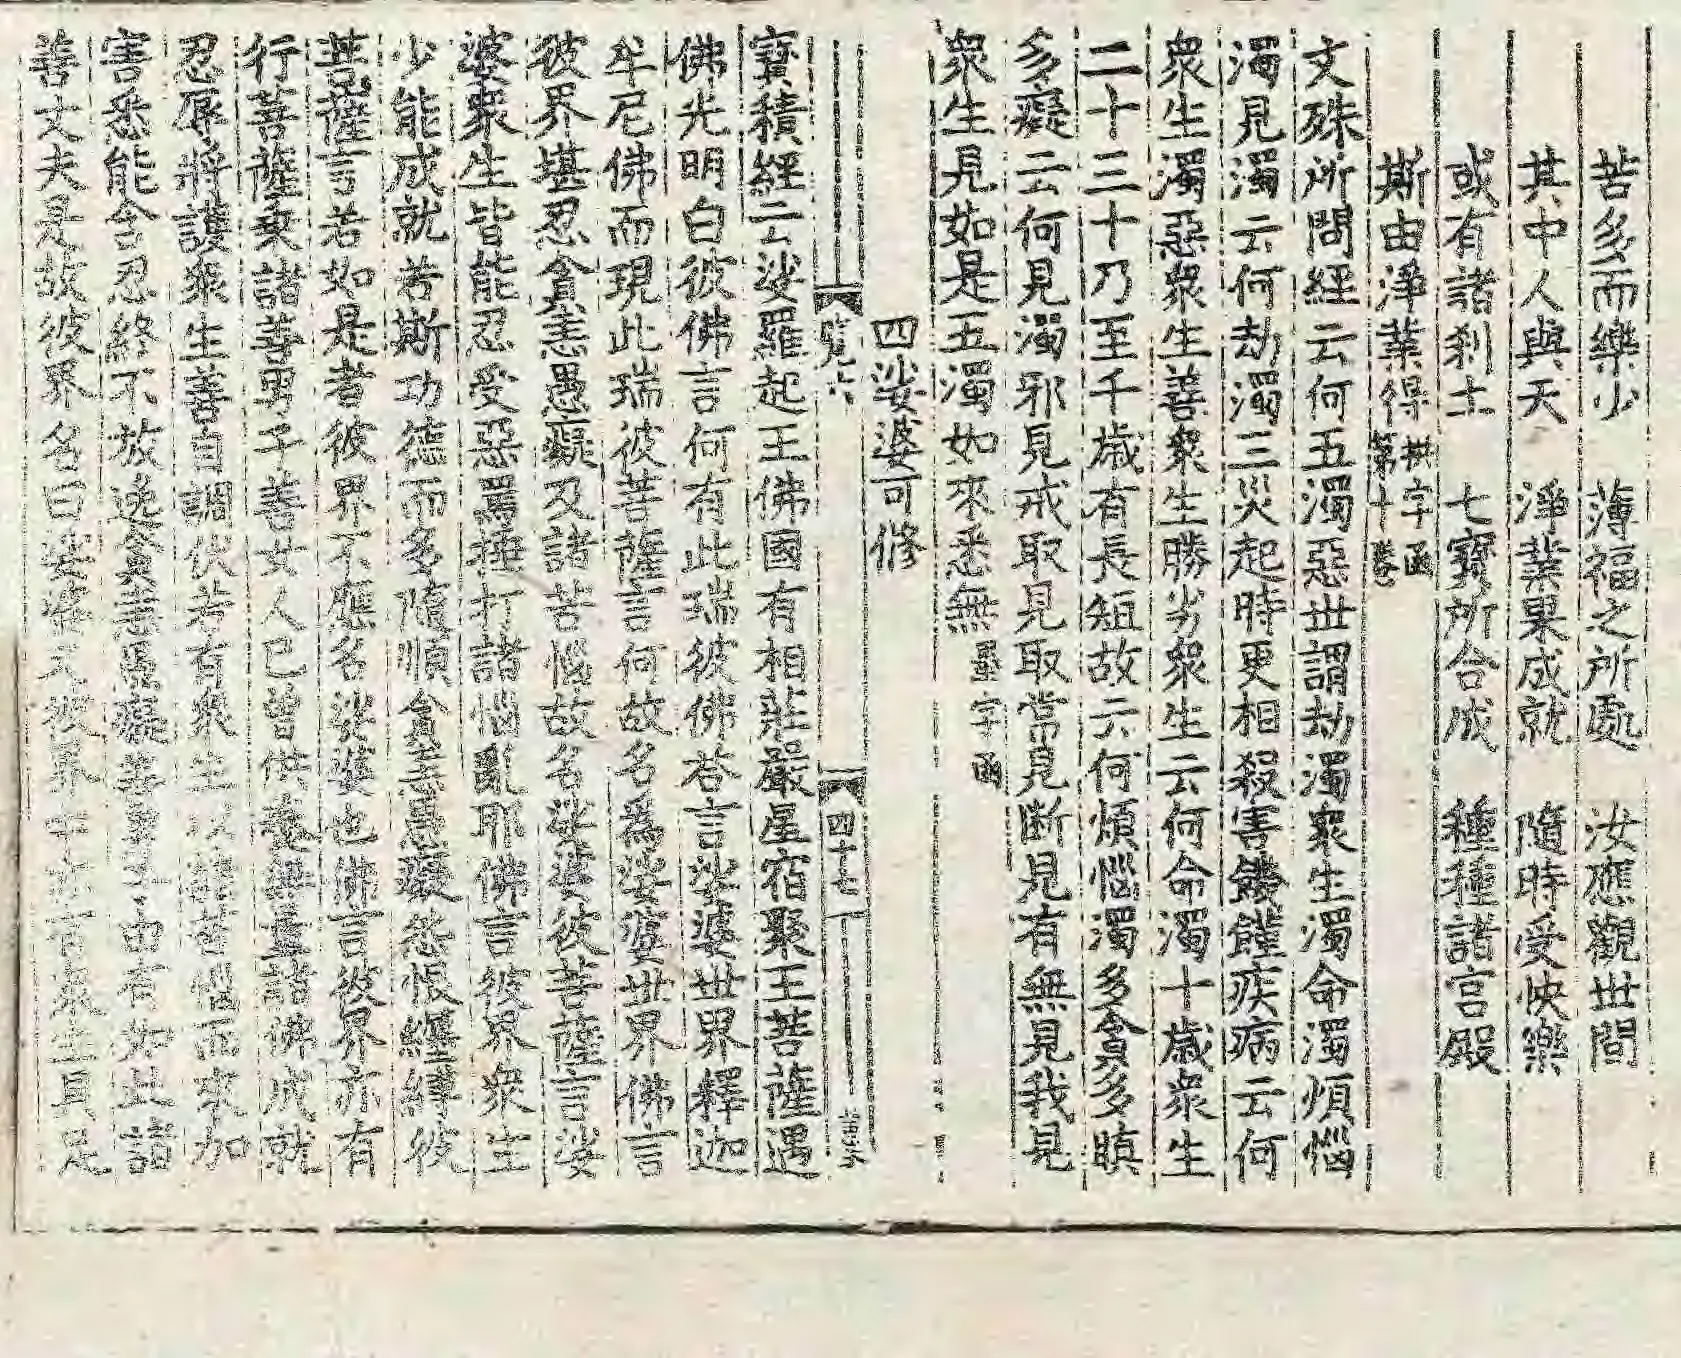 苦多而樂少 薄福之所處 汝應觀世間
其中人與天 淨業果成就 隨時受快樂
或有諸刹土 七寶所合成 種種諸宮殿
斯由淨業得 拱字函第十卷
文殊所問經云何五濁惡世謂劫濁衆生濁命濁煩惱
濁見濁云何劫濁三災起時更相殺害饑饉疾病云何
衆生濁惡衆生善衆生勝劣衆生云何命濁十歲衆生
二十三十乃至千歲有長短故云何煩惱濁多貪多瞋
多癡云何見濁邪見戒取見取常見斷見有無見我見
衆生見如是五濁如來悉無 字函
四娑婆可修
覽六 四十七
寶積經云娑羅起王佛國有相莊嚴星宿聚王菩薩遇
佛光明白彼佛言何有此瑞彼佛荅言娑婆世界釋迦
牟尼佛而現此瑞彼菩薩言何故名爲娑婆世界佛言
彼界堪忍貪恚愚癡及諸苦惱故名娑婆彼菩薩言娑
婆衆生皆能忍受惡罵捶打諸惱亂耶佛言彼界衆生
少能成就若斯功德而多隨順貪恚愚癡怨恨纏縛彼
菩薩言若如是者彼界不應名娑婆也佛言彼界亦有
行菩薩乗諸善男子善女人已曾供養無量諸佛成就
忍辱將護衆生善自調伏若有衆生以諸苦惱而來加
害悉能含忍終不放逸貪恚愚癡善男子由有如此諸
善丈夫是故彼界名曰娑婆又彼界中亦有衆生具足